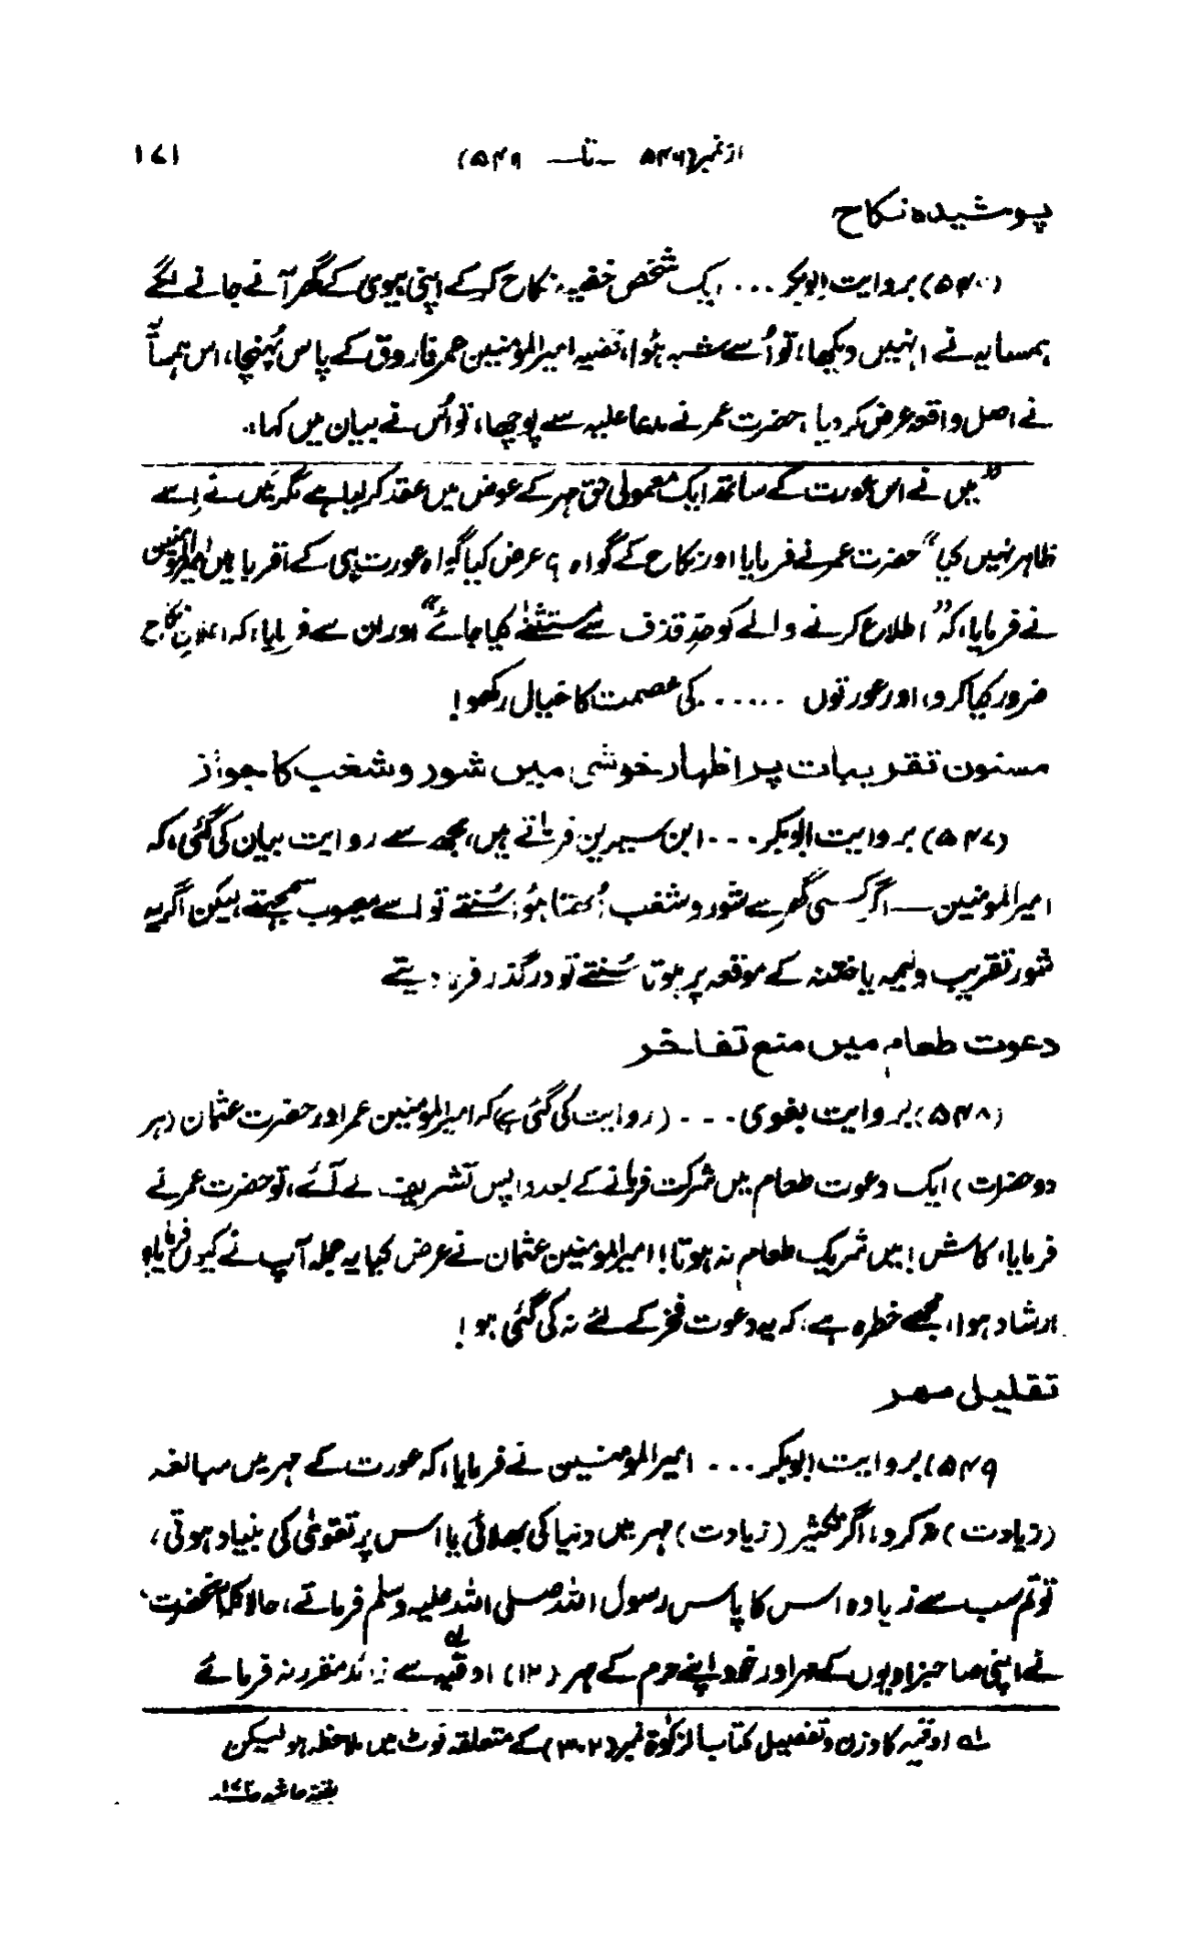 از نمبر (۵۴۶ — تا — ۵۴۹) ۱۷۱
پوشیدہ نکاح
(۵۴۶) بروایت ابوبکر ... ایک شخص خفیہ نکاح کر کے اپنی بیوی کے گھر آنے جانے لگے
ہمسایہ نے انہیں دیکھا، تو اُسے شبہ ہُوا، قضیہ امیرالمؤمنین عمر فاروق کے پاس پُہنچا، اس ہمسایہ
نے اصل واقعہ عرض کر دیا، حضرت عمر نے مدعا علیہ سے پوچھا، تو اُس نے بیان میں کہا:۔
”میں نے اس عورت کے ساتھ ایک معمولی حق مہر کے عوض میں عقد کر لیا ہے مگر میں نے اِسے
ظاہر نہیں کیا“ حضرت عمر نے فرمایا اور نکاح کے گواہ ؟ عرض کیا گواہ عورت ہی کے اقربا ہیں امیرالمؤمنین
نے فرمایا، کہ ”اطلاع کرنے والے کو حدِ قذف سے مستثنٰے کیا جائے“ اور ان سے فرمایا، کہ اعلانِ نکاح
ضرور کیا کرو، اور عورتوں ...... کی عصمت کا خیال رکھو!
مسنون تقریبات پر اظہار خوشی میں شور و شغب کا جواز
(۵۴۷) بروایت ابوبکر ... ابن سیرین فرماتے ہیں، مجھ سے روایت بیان کی گئی، کہ
امیرالمومنین — اگر کسی گھر سے شور و شغب اُٹھتا ہُوا سُنتے تو اسے معیوب سمجھتے، لیکن اگر یہ
شور تقریب ولیمہ یا ختنہ کے موقعہ پر ہوتا سُنتے تو درگذر فرما دیتے
دعوت طعام میں منع تفاخر
(۵۴۸) بروایت بغوی ... (روایت کی گئی ہے) کہ امیرالمؤمنین عمر اور حضرت عثمان (ہر
دو حضرات) ایک دعوت طعام میں شرکت فرمانے کے بعد واپس تشریف لے آئے، تو حضرت عمر نے
فرمایا، کاش! میں شریک طعام نہ ہوتا! امیرالمومنین عثمان نے عرض کیا یہ جملہ آپ نے کیوں فرمایا؟
ارشاد ہوا، مجھے خطرہ ہے، کہ یہ دعوت فخر کے لئے نہ کی گئی ہو!
تقلیل مہر
۵۴۹) بروایت ابوبکر ... امیرالمؤمنین نے فرمایا، کہ عورت کے مہر میں مبالغہ
(زیادت) نہ کرو، اگر تکثیر (زیادت) مہر میں دنیا کی بھلائی یا اس پر تقوٰی کی بنیاد ہوتی،
تو تم سب سے زیادہ اس کا پاس رسول اللہ صلی اللہ علیہ وسلم فرماتے، حالانکہ آنحضرت
نے اپنی صاحبزادیوں کے مہر اور خود اپنے حرم کے مہر (۱۲) اوقیہ لہ سے زائد مقرر نہ فرمائے
لہ اوقیہ کا وزن و تفصیل کتاب الزکوٰة نمبر (۳۰۲) کے متعلقہ نوٹ میں ملاحظہ ہو لیکن
بقیہ حاشیہ ص۱۷۲